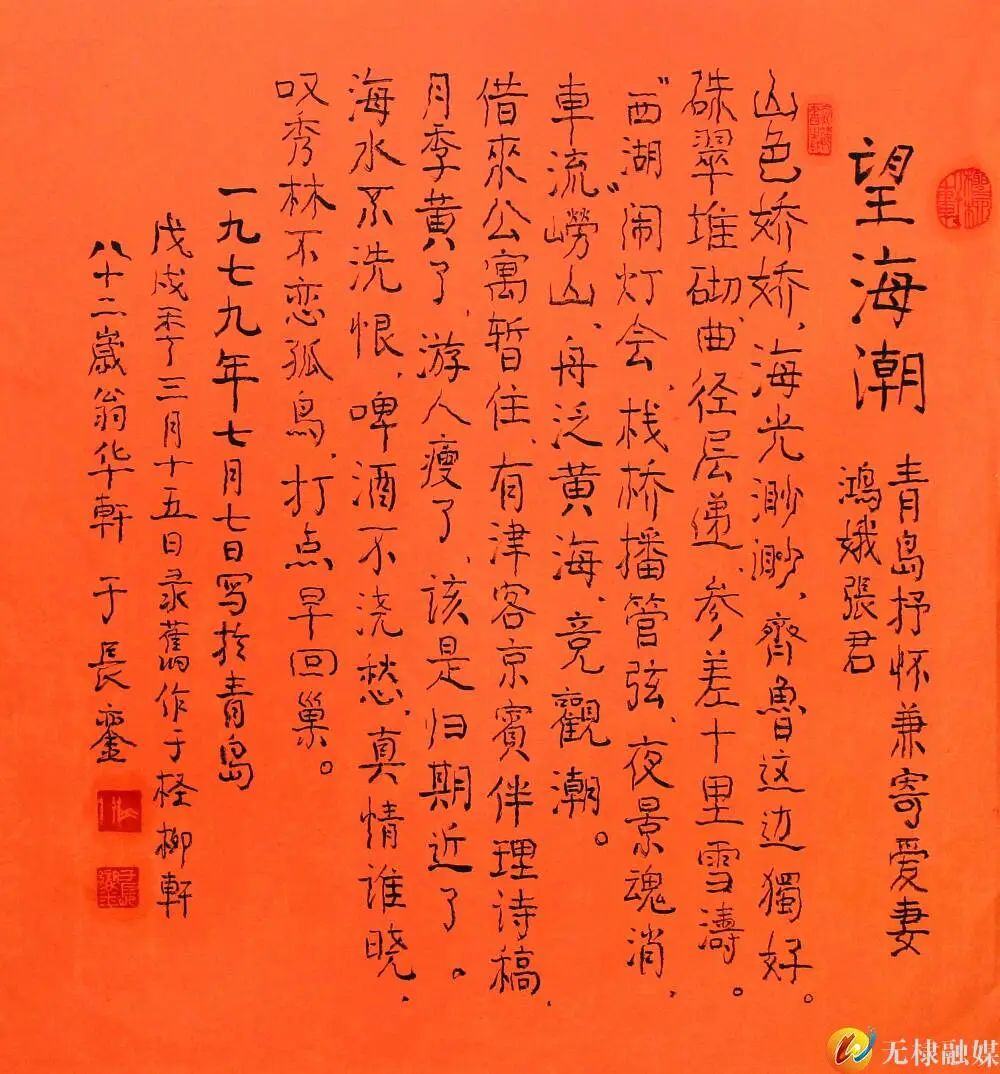 望海潮
青岛抒怀兼寄爱妻
鸿娥張君
山色娇娇、海光渺渺，齊魯这边獨好。
硃翠堆砌、曲径层递、参差十里雪濤。
“西湖”闹灯会、栈桥播管弦、夜景魂消、
車流崂山、舟泛黄海、竞觀潮。
借來公寓暂住、有津客京賓伴理诗稿、
月季黄了、游人瘦了、该是归期近了。
海水不洗恨、啤酒不浇愁、真情谁晓、
叹秀林不恋孤鸟、打点早回巢。
一九七九年七月七日写於青岛
戊戌季三月十五日录舊作于柽柳軒
八十二歲翁华軒 于長銮
无棣融媒